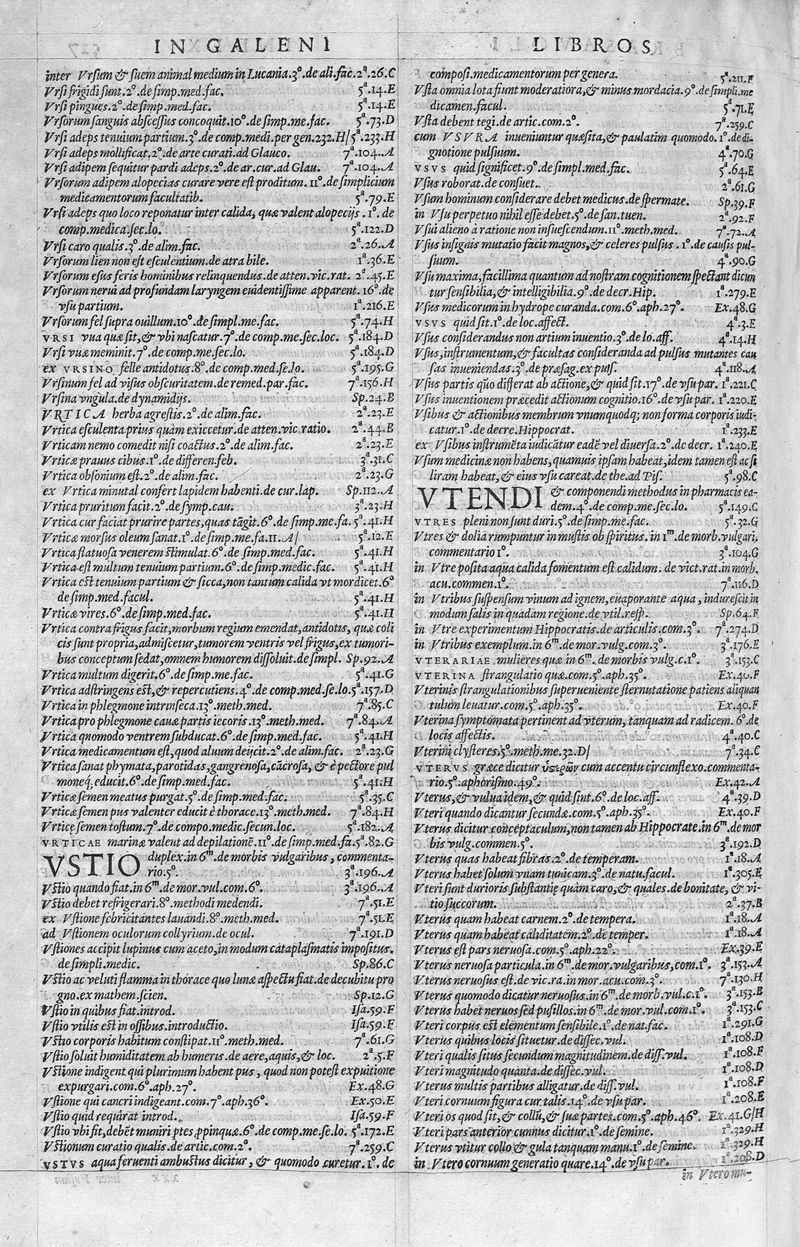 IN GALENI
inter Vrsum & suem animal medium in Lucania.3º.de ali.fac.2ª.26.C
Vrsi frigidi sunt.2º.de simp.med.fac. 5ª.14.E
Vrsi pingues.2º.de simp.med.fac. 5ª.14.E
Vrsorum sanguis abscessus concoquit.10º.de simp.me.fac. 5ª.73.D
Vrsi adeps tenuium partium.3º.de comp.medi.per gen.232.H/5ª.233.H
Vrsi adeps mollificat.2º.de arte curati.ad Glauco. 7ª.104.A
Vrsi adipem sequitur pardi adeps.2º.de ar.cur.ad Glau. 7ª.104.A
Vrsorum adipem alopecias curare vere est proditum. 11º.de simplicium
medicamentorum facultatib. 5ª.79.E
Vrsi adeps quo loco reponatur inter calida, quæ valent alopecijs. 1º. de
comp.medica.sec.lo. 5ª.122.D
Vrsi caro qualis.3º.de alim.fac. 2ª.26.A
Vrsorum lien non est esculentium.de atra bile. 1ª.36.E
Vrsorum esus feris hominibus relinquendus.de atten.vic.rat. 2ª.45.E
Vrsorum nerui ad profundam laryngem euidentissime apparent. 16º.de
vsu partium. 1ª.216.E
Vrsorum fel supra ouillum.10º.de simpl.me.fac. 5ª.74.H
VRSI vua quæ sit,& vbi nascatur.7º.de comp.me.sec.loc. 5ª.184.D
Vrsi vuæ meminit.7º.de comp.me.sec.lo. 5ª.184.D
ex VRSINO felle antidotus.8º.de comp.med.se.lo. 5ª.195.G
Vrsinum fel ad visus obscuritatem.de remed.par.fac. 7ª.156.H
Vrsina vngula.de dynamidijs. Sp.24.B
VRTICA herba agrestis.2º.de alim.fac. 2ª.23.E
Vrtica esculenta prius quàm exiccetur.de atten.vic ratio. 2ª.44.B
Vrticam nemo comedit nisi coactus.2º.de alim.fac. 2ª.23.E
Vrticæ prauus cibus.1º.de differen.feb. 3ª.31.C
Vrtica obsonium est.2º.de alim.fac. 2ª.23.G
ex Vrtica minutal confert lapidem habenti.de cur.lap. Sp.112.A
Vrtica pruritum facit.2º.de symp.cau. 3ª.23.H
Vrtica cur faciat prurire partes,quas tāgit.6º.de simp.me.fa.5ª.41.H
Vrticæ morsus oleum sanat.1º.de simp.me.fa.11.A/ 5ª.12.E
Vrtica flatuosa venerem stimulat.6º.de simp.med.fac. 5ª.41.H
Vrtica est multum tenuium partium.6º.de simp.medic.fac. 5ª.41.H
Vrtica est tenuium partium & sicca,non tantum calida vt mordicet.6º
de simp.med.facul. 5ª.41.H
Vrticæ vires.6º.de simp.med.fac. 5ª.41.H
Vrtica contra frigus facit,morbum regium emendat,antidotus, quæ coli
cis sunt propria,admiscetur,tumorem ventris vel frigus,ex tumori-
bus conceptum sedat,omnem humorem dissoluit.de simpl. Sp.92.A
Vrtica multum digerit.6º.de simp.me.fac. 5ª.41.G
Vrtica adstringens est,& repercutiens.4º.de comp.med.se.lo.5ª.157.D
Vrtica in phlegmone intrinseca.13º.meth.med. 7ª.85.C
Vrtica pro phlegmone cauæ partis iecoris.13º.meth.med. 7ª.84.A
Vrtica quomodo ventrem subducat.6º.de simp.med.fac. 5ª.41.H
Vrtica medicamentum est,quod aluum deijcit.2º.de alim.fac. 2ª.23.G
Vrtica sanat phymata,parotidas,gangrenosa,cācrosa,& è pectore pul
moneq́; educit.6º.de simp.med.fac. 5ª.41.H
Vrticæ semen meatus purgat.5º.de simp.med.fac. 5ª.35.C
Vrticæ semen pus valenter educit è thorace.13º.meth.med. 7ª.84.H
Vrticę semen tostum.7º.de compo.medic.secun.loc. 5ª.182.A
VRTICAE marinæ valent ad depilationē.11º.de simp.med.fa.5ª.82.G
VSTIO duplex.in 6m.de morbis vulgaribus, commenta-
rio.5º. 3ª.196.A
Vstio quando fiat.in 6m.de mor.vul.com.6º. 3ª.196.A
Vstio debet refrigerari.8º.methodi medendi. 7ª.51.E
ex Vstione febricitantes lauandi.8º.meth.med. 7ª.51.E
ad Vstionem oculorum collyrium.de ocul. 7ª.191.D
Vstiones accipit lupinus cum aceto,in modum cataplasmatis impositus.
de simpli.medic. Sp.86.C
Vstio ac veluti flamma in thorace quo lunæ aspectu fiat de decubitu pro
gno.ex mathem.scien. Sp.12.G
Vstio in quibus fiat.introd. Isa.59.F
Vstio vtilis est in ossibus.introductio. Isa.59.F
Vstio corporis habitum constipat.11º.meth.med. 7ª.61.G
Vstio soluit humiditatem ab humeris.de aere,aquis,& loc. 2ª.5.F
Vstione indigent qui plurimum habent pus, quod non potest expuitione
expurgari.com.6º.aph.27º. Ex.48.G
Vstione qui cancri indigeant.com.7º.aph.36º. Ex.50.E
Vstio quid requirat introd. Isa.59.F
Vstio vbi fit,debēt muniri ptes ppinquæ.6º.de comp.me.se.lo. 5ª.172.E
Vstionum curatio qualis.de artic.com.2º. 7ª.259.C
VSTVS aqua feruenti ambustus dicitur, & quomodo curetur. 1º. de
LIBROS
composi.medicamentorum per genera. 5ª.211.F
Vsta omnia lota fiunt moderatiora,& minus mordacia.9º.de simpli.me
dicamen.facul. 5ª.71.E
Vsta debent tegi.de artic.com.2º. 7ª.259.C
cum VSVRA inueniuntur quæsita,& paulatim quomodo. 1º.de di-
gnotione pulsuum. 4ª.70.G
VSVS quid significet.9º.de simpl.med.fac. 5ª.64.E
Vsus roborat.de consuet. 2ª.61.G
Vsum hominum considerare debet medicus.de spermate. Sp.39.F
in Vsu perpetuo nihil esse debet.5º.de san.tuen. 2ª.92.F
Vsui alieno à ratione non insuescendum.11º.meth.med. 7ª.72.A
Vsus insignis mutatio facit magnos,& celeres pulsus. 1º.de causis pul-
suum. 4ª.90.G
Vsu maxima,facillima quantum ad nostram cognitionem spectant dicun
tur sensibilia,& intelligibilia.9º.de decr.Hip. 1ª.279.E
Vsus medicorum in hydrope curanda.com.6º.aph.27º. Ex.48.G
VSVS quid sit.1º.de loc.affect. 4ª.3.E
Vsus considerandus non artium inuentio.3º.de lo.aff. 4ª.14.H
Vsus,instrumentum,& facultas consideranda ad pulsus mutantes cau
sas inueniendas.3º.de præsag.ex pus. 4ª.118.A
Vsus partis quo differat ab actione,& quid sit.17º.de vsu par. 1ª.221.C
Vsus inuentionem præcedit actionum cognitio.16º.de vsu par. 1ª.220.E
Vsibus & actionibus membrum vnumquodq; non forma corporis iudi-
catur.1º.de decre.Hippocrat. 1ª.233.E
ex Vsibus instrumēta iudicātur eadē vel diuersa.2º.de decr. 1ª.240.E
Vsum medicinæ non habens,quamuis ipsam habeat,idem tamen est ac si
liram habeat,& eius vsu careat.de the.ad Pis. 5ª.98.C
VTENDI & componendi methodus in pharmacis ea-
dem.4º.de comp.me.sec.lo. 5ª.149.C
VTRES pleni non sunt duri.5º.de simp.me.fac. 5ª.32.G
Vtres & dolia rumpuntur in mustis ob spiritus. in 1m.de morb.vulgari.
commentario 1º. 3ª.104.G
in Vtre posita aqua calida fomentum est calidum. de vict.rat.in morb.
acu.commen.1º. 7ª.116.D
in Vtribus suspensum vinum ad ignem,euaporante aqua, indurescit in
modum salis in quadam regione.de vtil.resp. Sp.64.F
in Vtre experimentum Hippocratis.de articulis.com.3º. 7ª.274.D
in Vtribus exemplum.in 6m.de mor.vulg.com.3º. 3ª.176.E
VTERARIAE mulieres quæ in 6m.de morbis vulg.c.1º. 3ª.153.C
VTERINA strangulatio quæ.com.5º.aph.35º. Ex.40.F
Vterinis strangulationibus superueniente sternutatione patiens aliquan
tulum leuatur.com.5º.aph.35º. Ex.40.F
Vterina symptomata pertinent ad vterum, tanquam ad radicem. 6º.de
locis affectis. 4ª.40.C
Vterini clysteres.5º.meth.me.32.D/ 7ª.34.C
VTERVS græce dicitur ὑστερῶν cum accentu circunflexo.commenta-
rio.5º.aphorismo.49º. Ex.42.A
Vterus,& vulua idem,& quid sint.6º.de loc.aff. 4ª.39.D
Vteri quando dicantur secundæ.com.5º.aph.35º. Ex.40.F
Vterus dicitur conceptaculum,non tamen ab Hippocrate.in 6m.de mor
bis vulg.commen.5º. 3ª.192.D
Vterus quas habeat fibras.2º.de temperam. 1ª.18.A
Vterus habet solum vnam tunicam.3º.de natu.facul. 1ª.305.E
Vteri sunt durioris substantię quàm caro,& quales.de bonitate, & vi-
tio succorum. 2ª.37.B
Vterus quam habeat carnem.2º.de tempera. 1ª.18.A
Vterus quam habeat caliditatem.2º.de temper. 1ª.18.A
Vterus est pars neruosa.com.5º.aph.22º. Ex.39.E
Vterus neruosa particula.in 6m.de mor.vulgaribus,com.1º. 3ª.153.A
Vterus neruosus est.de vic.ra.in mor.acu.com.3º. 7ª.130.H
Vterus quomodo dicatur neruosus.in 6m.de morb.vul.c.1º. 3ª.153.B
Vterus habet neruos sed pusillos.in 6m.de mor.vul.com.1º. 3ª.153.C
Vteri corpus est elementum sensibile.1º.de nat.fac. 1ª.291.G
Vterus quibus locis situetur.de dissec.vul. 1ª.108.D
Vteri qualis situs secundum magnitudinem.de diss.vul. 1ª.108.F
Vteri magnitudo quanta.de dissec.vul. 1ª.108.D
Vterus multis partibus alligatur.de diss.vul. 1ª.108.F
Vteri cornuum figura cur talis.14º.de vsu par. 1ª.208.E
Vteri os quod sit,& collū,& suæ partes.com.5º.aph.46º. Ex.41.G/H
Vteri pars anterior cunnus dicitur.1º.de semine. 1ª.329.H
Vterus vtitur collo & gula tanquam manu.1º.de semine. 1ª.329.H
in Vtero cornuum generatio quare.14º.de vsu par. 1ª.208.D
in Vtero mu-